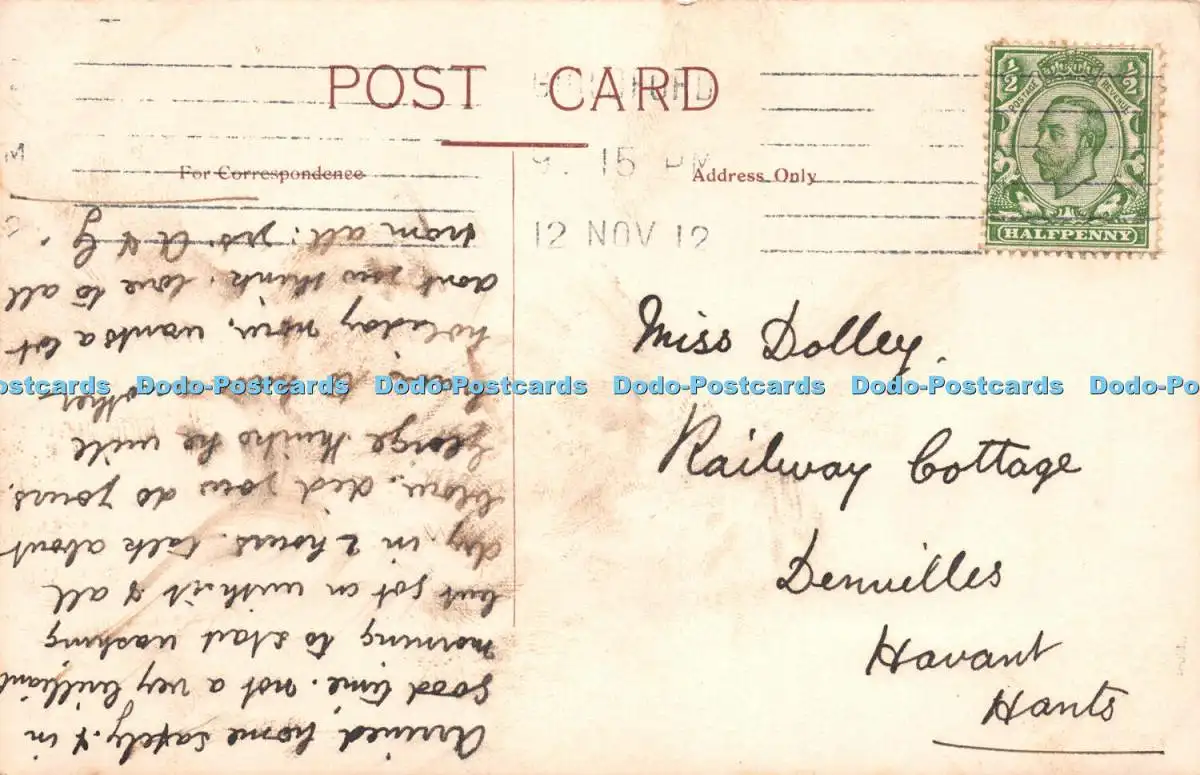 POST CARD
For Correspondence
Address Only
9. 15 PM
12 NOV 12
½ ½
POSTAGE REVENUE
HALFPENNY
Miss Dolley.
Railway Cottage
Denvilles
Havant
Hants
Arrived home safely. & in
good time. not a very brilliant
morning to start washing
but got on with it & all
dry in 2 hours. talk about
blow. did you do yours.
George thinks he will
other
holiday now, wants a lot
dont you think. love to all
from all: yrs. A & G.
Dodo-Postcards Dodo-Postcards Dodo-Postcards Dodo-Postcards